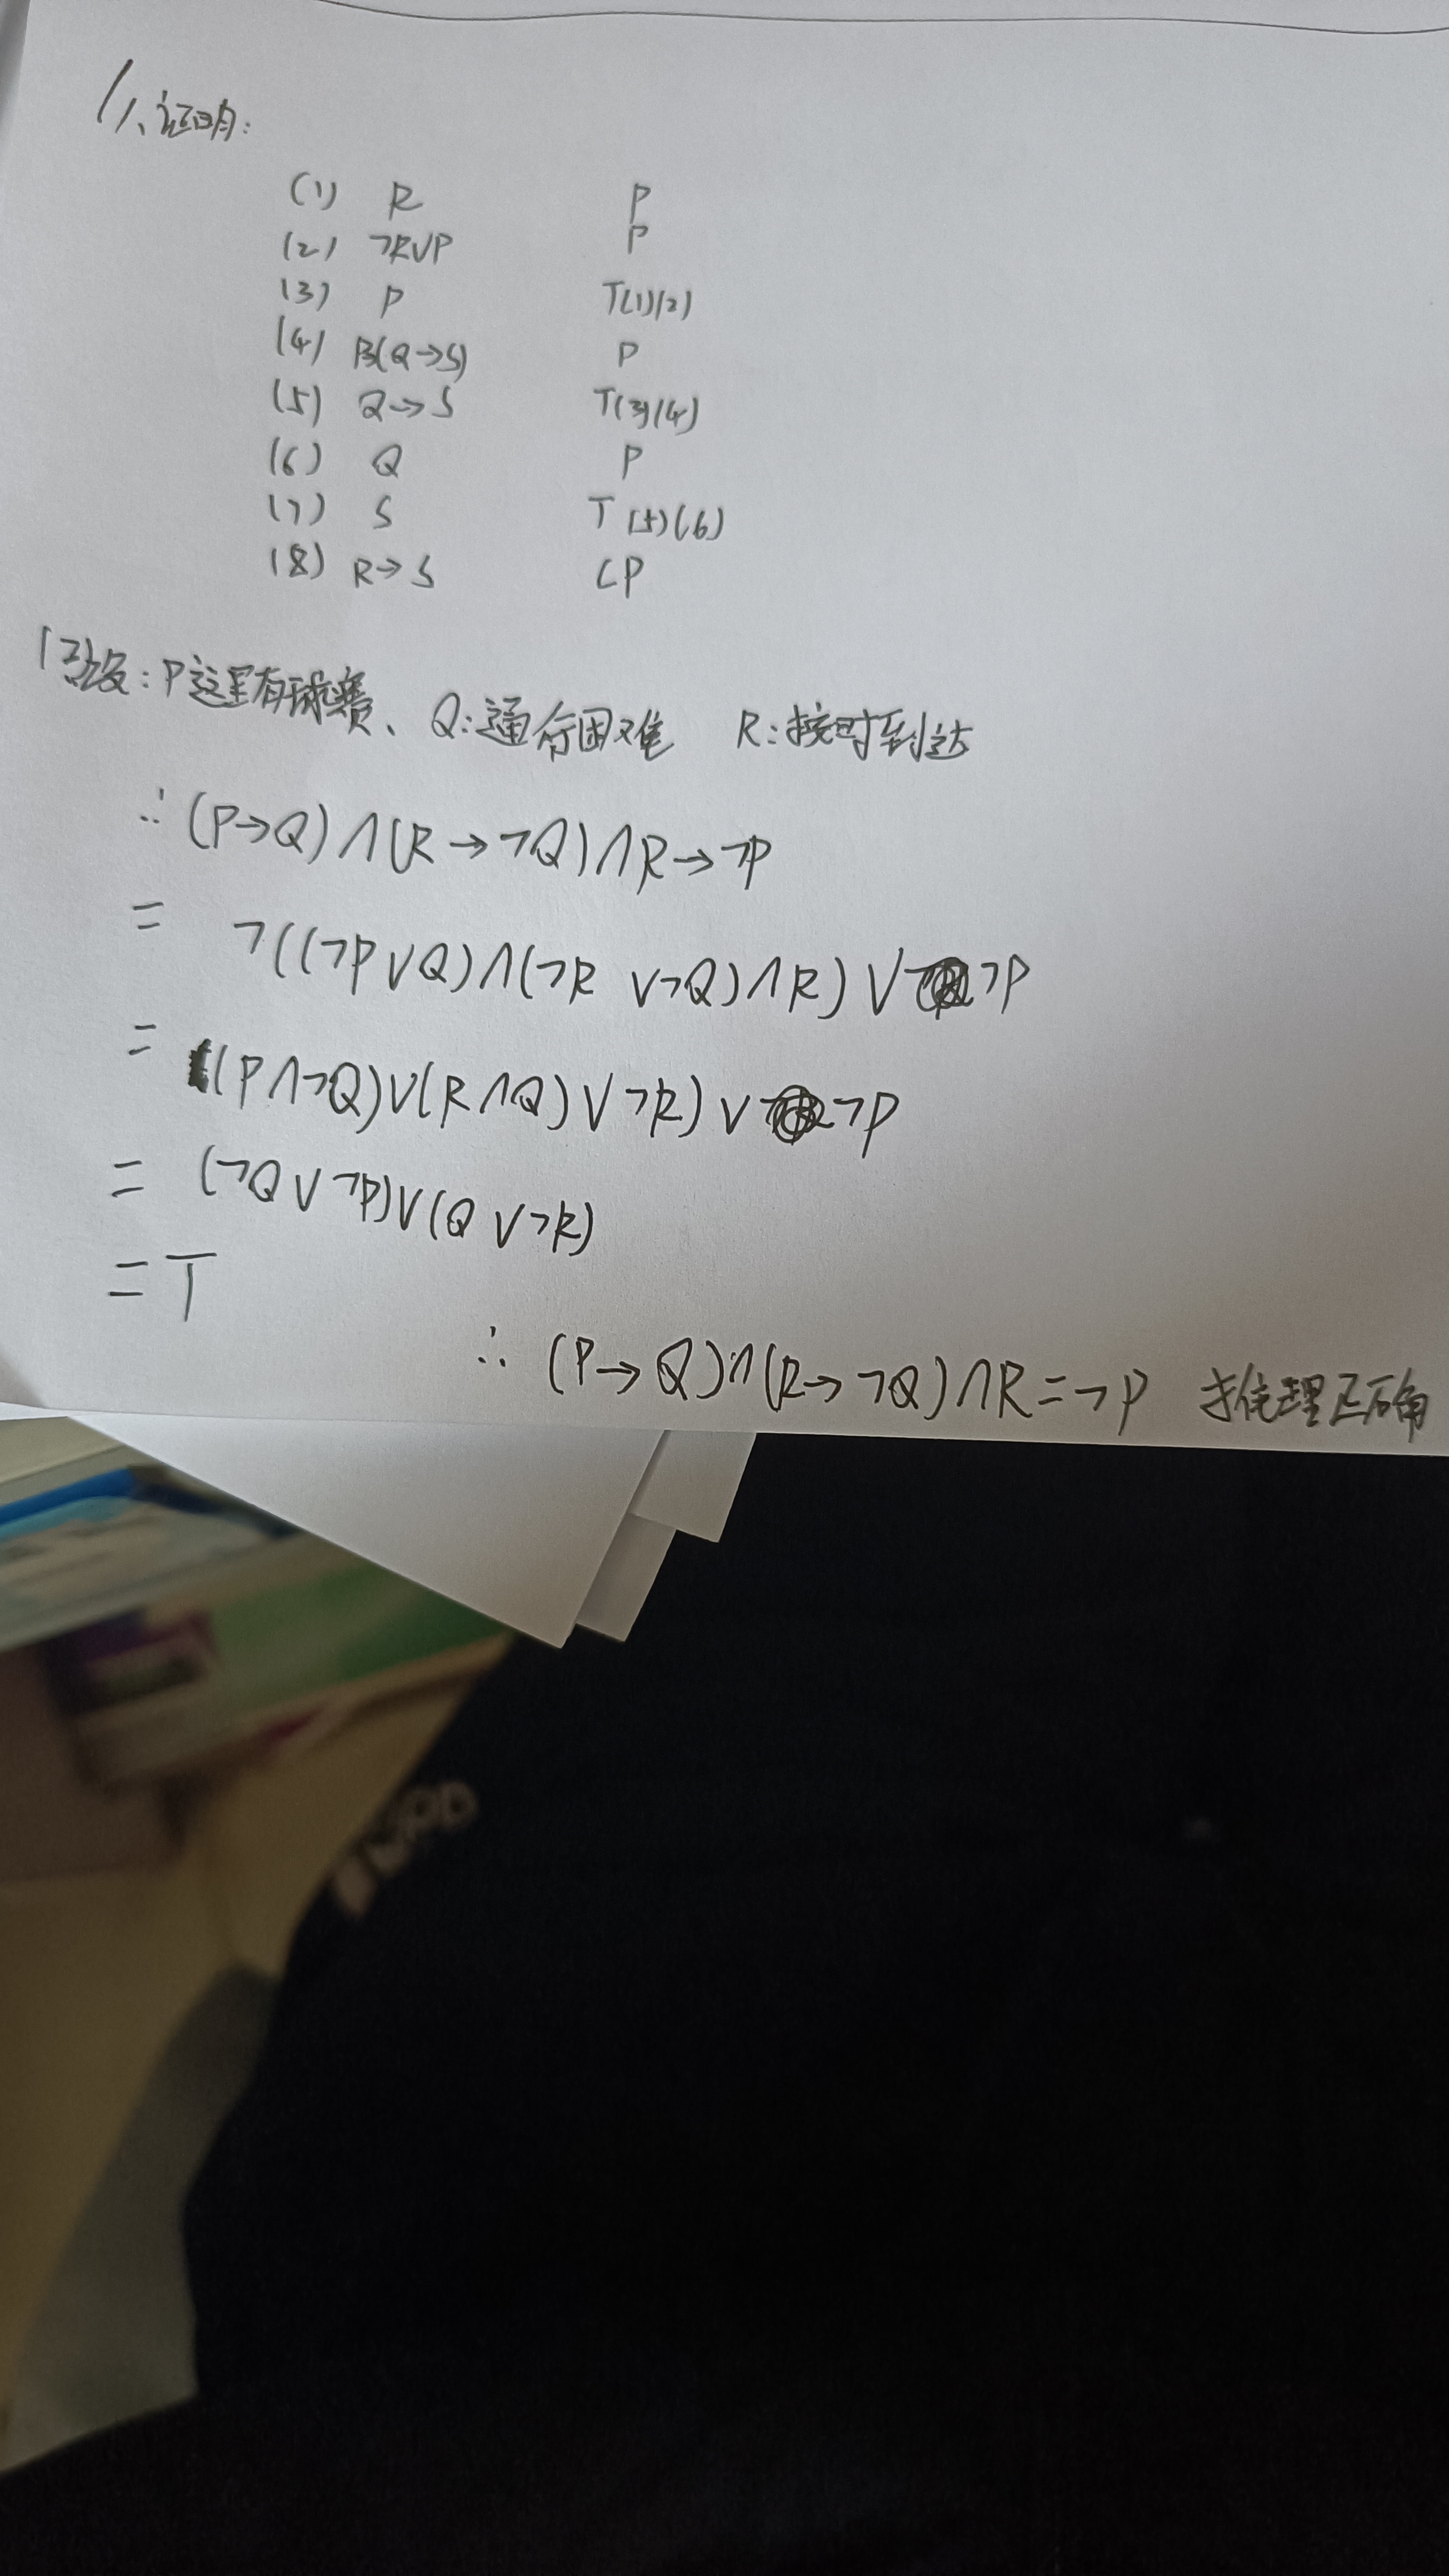 11、证明:
(1) R P
(2) ¬R∨P P
(3) P T(1)(2)
(4) P→(Q→S) P
(5) Q→S T(3)(4)
(6) Q P
(7) S T(5)(6)
(8) R→S CP
12设:P这里有球赛、Q:通行困难 R:按时到达
∴ (P→Q)∧(R→¬Q)∧R→¬P
= ¬((¬P∨Q)∧(¬R ∨¬Q)∧R) ∨ ¬P
= ((P∧¬Q)∨(R∧Q)∨¬R) ∨ ¬P
= (¬Q∨¬P)∨(Q∨¬R)
= T
∴ (P→Q)∧(R→¬Q)∧R=¬P 推理正确